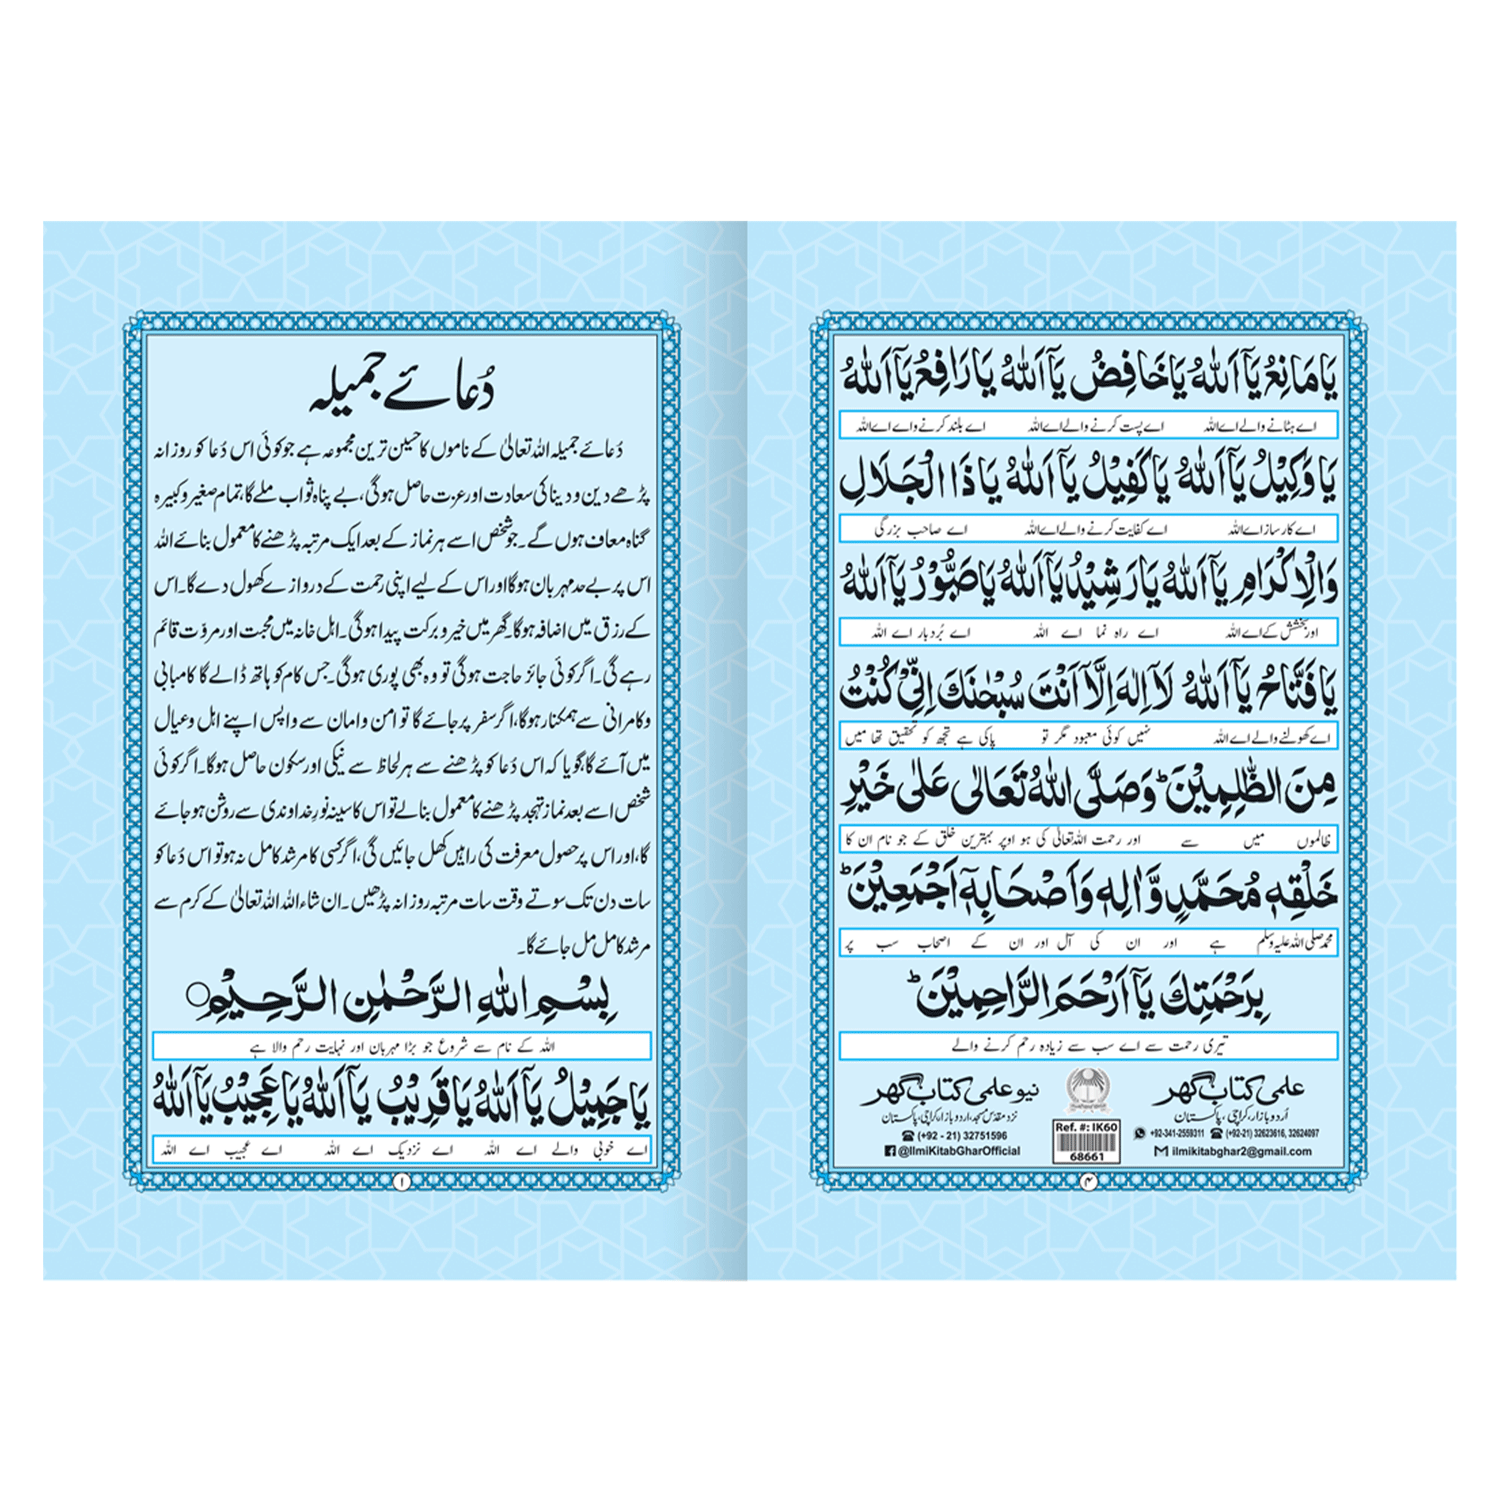 دُعائے جمیلہ
دُعائے جمیلہ اللہ تعالیٰ کے ناموں کا حسین ترین مجموعہ ہے جو کوئی اس دُعا کو روزانہ
پڑھے دین و دینا کی سعادت اور عزت حاصل ہوگی، بے پناہ ثواب ملے گا، تمام صغیر و کبیرہ
گناہ معاف ہوں گے۔ جو شخص اسے ہر نماز کے بعد ایک مرتبہ پڑھنے کا معمول بنائے اللہ
اس پر بے حد مہربان ہوگا اور اس کے لیے اپنی رحمت کے دروازے کھول دے گا۔ اس
کے رزق میں اضافہ ہوگا۔ گھر میں خیر و برکت پیدا ہوگی۔ اہل خانہ میں محبت اور مروّت قائم
رہے گی۔ اگر کوئی جائز حاجت ہوگی تو وہ بھی پوری ہوگی۔ جس کام کو ہاتھ ڈالے گا کامیابی
و کامرانی سے ہمکنار ہوگا، اگر سفر پر جائے گا تو امن و امان سے واپس اپنے اہل و عیال
میں آئے گا، گویا کہ اس دُعا کو پڑھنے سے ہر لحاظ سے نیکی اور سکون حاصل ہوگا۔ اگر کوئی
شخص اسے بعد نماز تہجد پڑھنے کا معمول بنالے تو اس کا سینہ نورِ خداوندی سے روشن ہو جائے
گا، اور اس پر حصول معرفت کی راہیں کھل جائیں گی، اگر کسی کا مرشد کامل نہ ہو تو اس دُعا کو
سات دن تک سوتے وقت سات مرتبہ روزانہ پڑھیں۔ ان شاء اللہ اللہ تعالیٰ کے کرم سے
مرشد کامل مل جائے گا۔
بِسْمِ اللّٰهِ الرَّحْمٰنِ الرَّحِيْمِ
اللہ کے نام سے شروع جو بڑا مہربان اور نہایت رحم والا ہے
يَا جَمِيْلُ يَآ اَللّٰهُ يَا قَرِيْبُ يَآ اَللّٰهُ يَا عَجِيْبُ يَآ اَللّٰهُ
اے خوبی والے اے اللہ اے نزدیک اے اللہ اے عجیب اے اللہ
۱
يَا مَانِعُ يَآ اَللّٰهُ يَا خَافِضُ يَآ اَللّٰهُ يَا رَافِعُ يَآ اَللّٰهُ
اے ہٹانے والے اے اللہ اے پست کرنے والے اے اللہ اے بلند کرنے واے اے اللہ
يَا وَكِيْلُ يَآ اَللّٰهُ يَا كَفِيْلُ يَآ اَللّٰهُ يَا ذَا الْجَلَالِ
اے کارساز اے اللہ اے کفایت کرنے والے اے اللہ اے صاحب بزرگی
وَالْاِكْرَامِ يَآ اَللّٰهُ يَا رَشِيْدُ يَآ اَللّٰهُ يَا صَبُوْرُ يَآ اَللّٰهُ
اور بخشش کے اے اللہ اے راہ نما اے اللہ اے بُردبار اے اللہ
يَا فَتَّاحُ يَآ اَللّٰهُ لَآ اِلٰهَ اِلَّآ اَنْتَ سُبْحٰنَكَ اِنِّيْ كُنْتُ
اے کھولنے والے اے اللہ نہیں کوئی معبود مگر تو پاکی ہے تجھ کو تحقیق تھا میں
مِنَ الظّٰلِمِيْنَ ؕ وَصَلَّى اللّٰهُ تَعَالٰى عَلٰى خَيْرِ
ظالموں میں سے اور رحمت اللہ تعالیٰ کی ہو اوپر بہترین خلق کے جو نام ان کا
خَلْقِهٖ مُحَمَّدٍ وَّاٰلِهٖ وَاَصْحَابِهٖٓ اَجْمَعِيْنَ ؕ
محمد صلی اللہ علیہ وسلم ہے اور ان کی آل اور ان کے اصحاب سب پر
بِرَحْمَتِكَ يَآ اَرْحَمَ الرَّاحِمِيْنَ ؕ
تیری رحمت سے اے سب سے زیادہ رحم کرنے والے
علمی کتاب گھر
اُردو بازار، کراچی، پاکستان
+92-341-2559311 (+92-21) 32623616, 32624097
ilmikitabghar2@gmail.com
Ref. #: IK60
68661
نیو علمی کتاب گھر
نزد مقدّس مسجد، اردو بازار، کراچی، پاکستان
(+92 - 21) 32751596
@IlmiKitabGharOfficial
۴